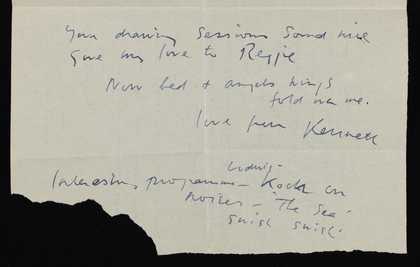 Your drawing sessions sound nice
Give my love to Reggie
Now bed & angels wings
fold over me.
love from Kenneth
Ludwig
Interesting programme – Koch on
noises – 'The Sea'
swish swish.